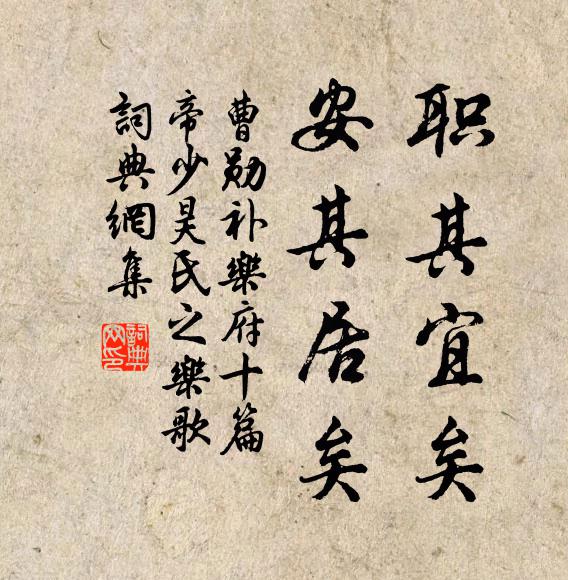 职其宜矣
安其居矣
曹勋补樂府十篇
帝少昊氏之樂歌
詞典網集
詞典网印